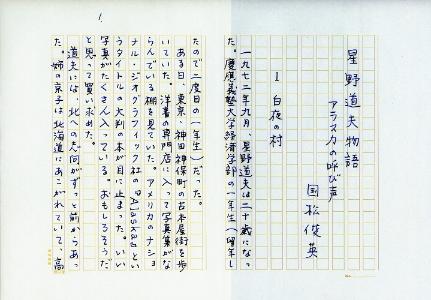 1
星野道夫物語
アラスカの呼び声
国松俊英
1 白夜の村
一九七二年九月、星野道夫は二十歳になっ
た。慶應義塾大学経済学部の一年生(留年し
たので二度目の一年生)だった。
ある日、東京、神田神保町の古本屋街を歩
いていた。洋書の専門店に入って写真集がな
らんでいる棚を見ていた。アメリカのナショ
ナル・ジオグラフィック社の『Alaska』とい
うタイトルの大判の本が目に止まった。いい
写真がたくさん入っている。おもしろそうだ
と思って買い求めた。
道夫には、北への志向がずっと前からあっ
た。姉の京子は北海道にあこがれていて、高